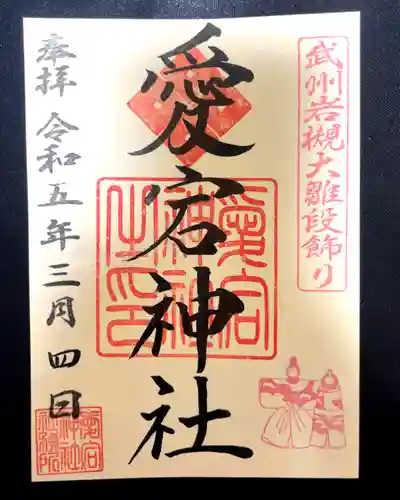 武州岩槻大雛段飾り
愛宕神社
奉拝 令和五年三月四日
愛宕
神社
之印
愛宕
神社
社務所